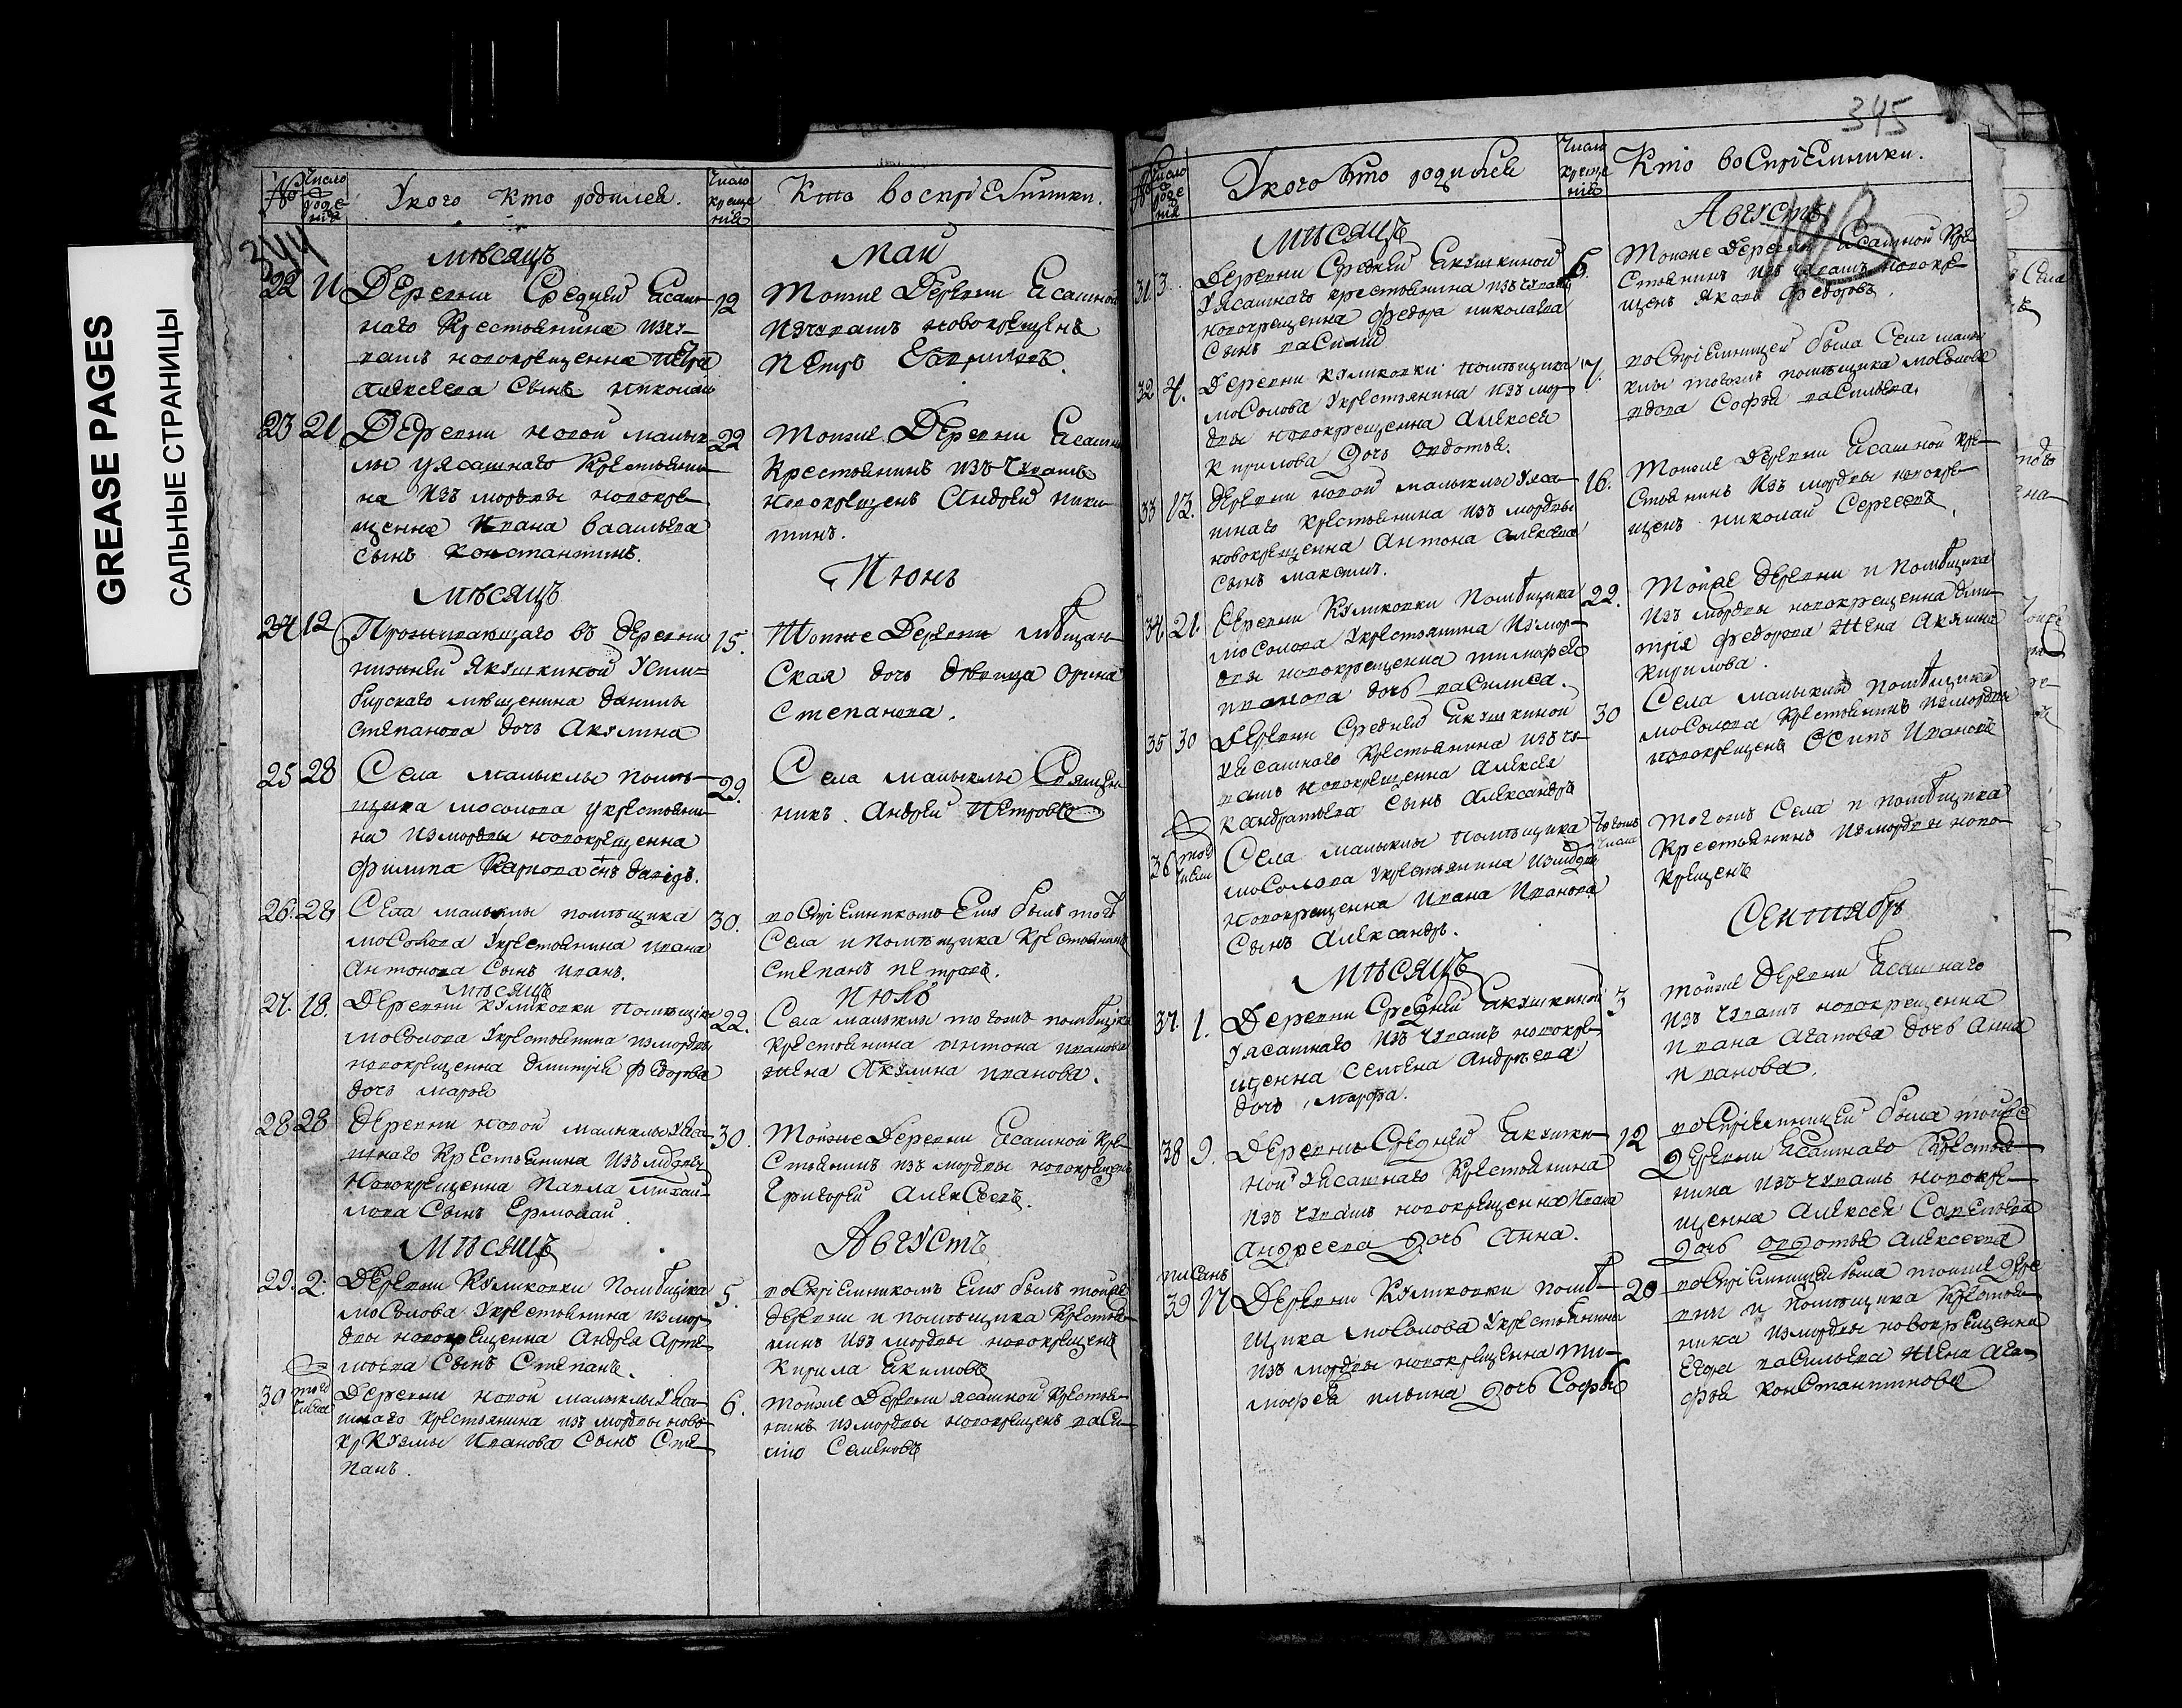 GREASE PAGES
САЛЬНЫЕ СТРАНИЦЫ
344
№
Число роде ния
У кого кто родился.
Число креще ния
Кто воспріемники.
мѣсяцъ
Май
22 11
Деревни Средней Ясаш-
наго Крестьянина изчу-
вашъ новокрещенна Петра
Алексеева Сынъ Николай
12
Тоижъ Деревни Ясашной
изчувашъ новокрещенъ
Петръ Гавриловъ.
23 21
Деревни новой малык-
лы уясашнаго Крестьяни-
на изъ мордвы новокре-
щенна Ивана Васильева
сынъ константинъ.
22
Тоижъ Деревни Ясашной
Крестьянинъ изъ Чувашъ
новокрещенъ Андрей ники-
тинъ.
Мѣсяцъ
Июнь
24 12
Проживающаго въ деревни
нижней Якушкиной усим-
бирскаго мѣщенина данилы
Степанова дочь Акулина
15.
Тоиже Деревни мѣщан-
ская дочь девица Орина
Степанова.
25 28
Села Малыклы помѣ-
щика мосолова укрестьяни-
на измордвы новокрещенна
Филипа Карпова снъ давидъ.
29.
Села малыклы Священ
никъ Андрей Петровъ
26. 28
Села малыклы помѣщика
мосолова укрестьянина ивана
Антонова Сынъ иванъ.
30.
воспріемникомъ Ему былъ того
Села и помѣщика Крестьянинъ
Степанъ петровъ.
мѣсяцъ
Июль
27. 18.
Деревни куликовки помѣщика
мосолова укрестьянина измордвы
новокрещенна дмитрія федорова
дочь марѳа
22.
Села малыклы тогожъ помѣщика
крестьянина антона иванова
жена Акулина иванова.
28 28
деревни новой малыклы уяса-
шнаго Крестьянина изъ мордвы
новокрещенна Павла михай-
лова Сынъ Ермолай.
30.
Тоиже Деревни Ясашной Кре-
стьянинъ изъ мордвы новокрещенъ
Григорей Алексеевъ.
Мѣсяцъ
Августъ
29. 2.
Деревни Куликовки Помѣщика
мосолова укрестьянина измор-
двы новокрещенна Андрея Арте-
моева Сынъ Степанъ.
5.
воспріемникомъ Ему былъ тоиже
деревни и помѣщика крестья-
нинъ изъ мордвы новокрещенъ
Кирила Екимовъ
30 того числа
Деревни новой малыклы уяса-
шнаго крестьянина изъ мордвы ново-
кр Кузмы Иванова Сынъ Сте-
панъ.
6.
тоиже Деревни ясашной крестья-
нинъ измордвы новокрещенъ васи-
лій Семеновъ
345
№
Число роде ния
У кого кто родился
Число креще ния
Кто воспріемники.
Мѣсяцъ
Августъ
31 3.
Деревни Средней Екушкиной
уясашнаго крестьянина изъ чувашъ
новокрещенна федора николаева
сынъ василей
6.
Тоиже Деревни Ясашной Кре-
стьянинъ изъ Чувашъ новокре-
щенъ Яковъ Федоровъ.
32 4.
Деревни куликовки помѣщика
мосолова укрестьянина изъ мор-
двы новокрещенна Алексея
Кирилова Дочь овдотья.
7.
воспріемницей была Села малы-
клы тогожъ помѣщика мосолова
вдова Софья васильева.
33 12.
деревни новой малыклы уяса-
шнаго крестьянина изъ мордвы
новокрещенна антона алексеева
сынъ максимъ.
16.
Тоиже Деревни Ясашной кре-
стьянинъ изъ мордвы новокре-
щенъ николай Сергеевъ.
34 21.
Деревни Куликовки Помѣщика
мосолова укрестьянина измор-
двы новокрещенна тимофея
иванова дочь василиса.
22.
Тоиже деревни и помѣщика
изъ мордвы новокрещенна дми-
трія федорова жена Акулина
кирилова.
35 30
Деревни Средней Екушкиной
уясашнаго Крестьянина изъ чу-
вашъ новокрещенна Алексея
кандратьева Сынъ Александръ
30
Села малыклы помѣщика
мосолова крестьянинъ измордвы
новокрещенъ Осипъ Ивановъ
36 того числа
Села малыклы помѣщика
мосолова укрестьянина измордвы
новокрещенна Ивана Иванова
Сынъ Александръ.
тогожъ числа
тогожъ Села и помѣщика
Крестьянинъ измордвы ново-
крещенъ
Мѣсяцъ
Сентябрь
37. 1.
Деревни Средней Екушкиной
уясашнаго изъ чувашъ новокре-
щенна семена Андреева
дочь марѳа.
3
тоиже Деревни Ясашнаго
изъ чувашъ новокрещенна
ивана Агапова дочь Анна
иванова.
38 9.
Деревнъ Средней Екушки-
ной уясашнаго Крестьянина
изъ чувашъ новокрещенна Ивана
Андреева дочь Анна.
12
воспріемницей была тоиже
деревни Ясашнаго Крестья-
нина изъ чувашъ новокре-
щенна Алексея Савельева
дочь овдотья Алексеева
писанъ
39 17
Деревни Куликовки помѣ-
щика мосолова укрестьянина
изъ мордвы новокрещенна ти-
мофея ильина дочь Софья
20
воспріемницей была тоиже дере
вни и помѣщика Крестья-
нина измордвы новокрещенна
Егора васильева жена Ага-
фья Константинова